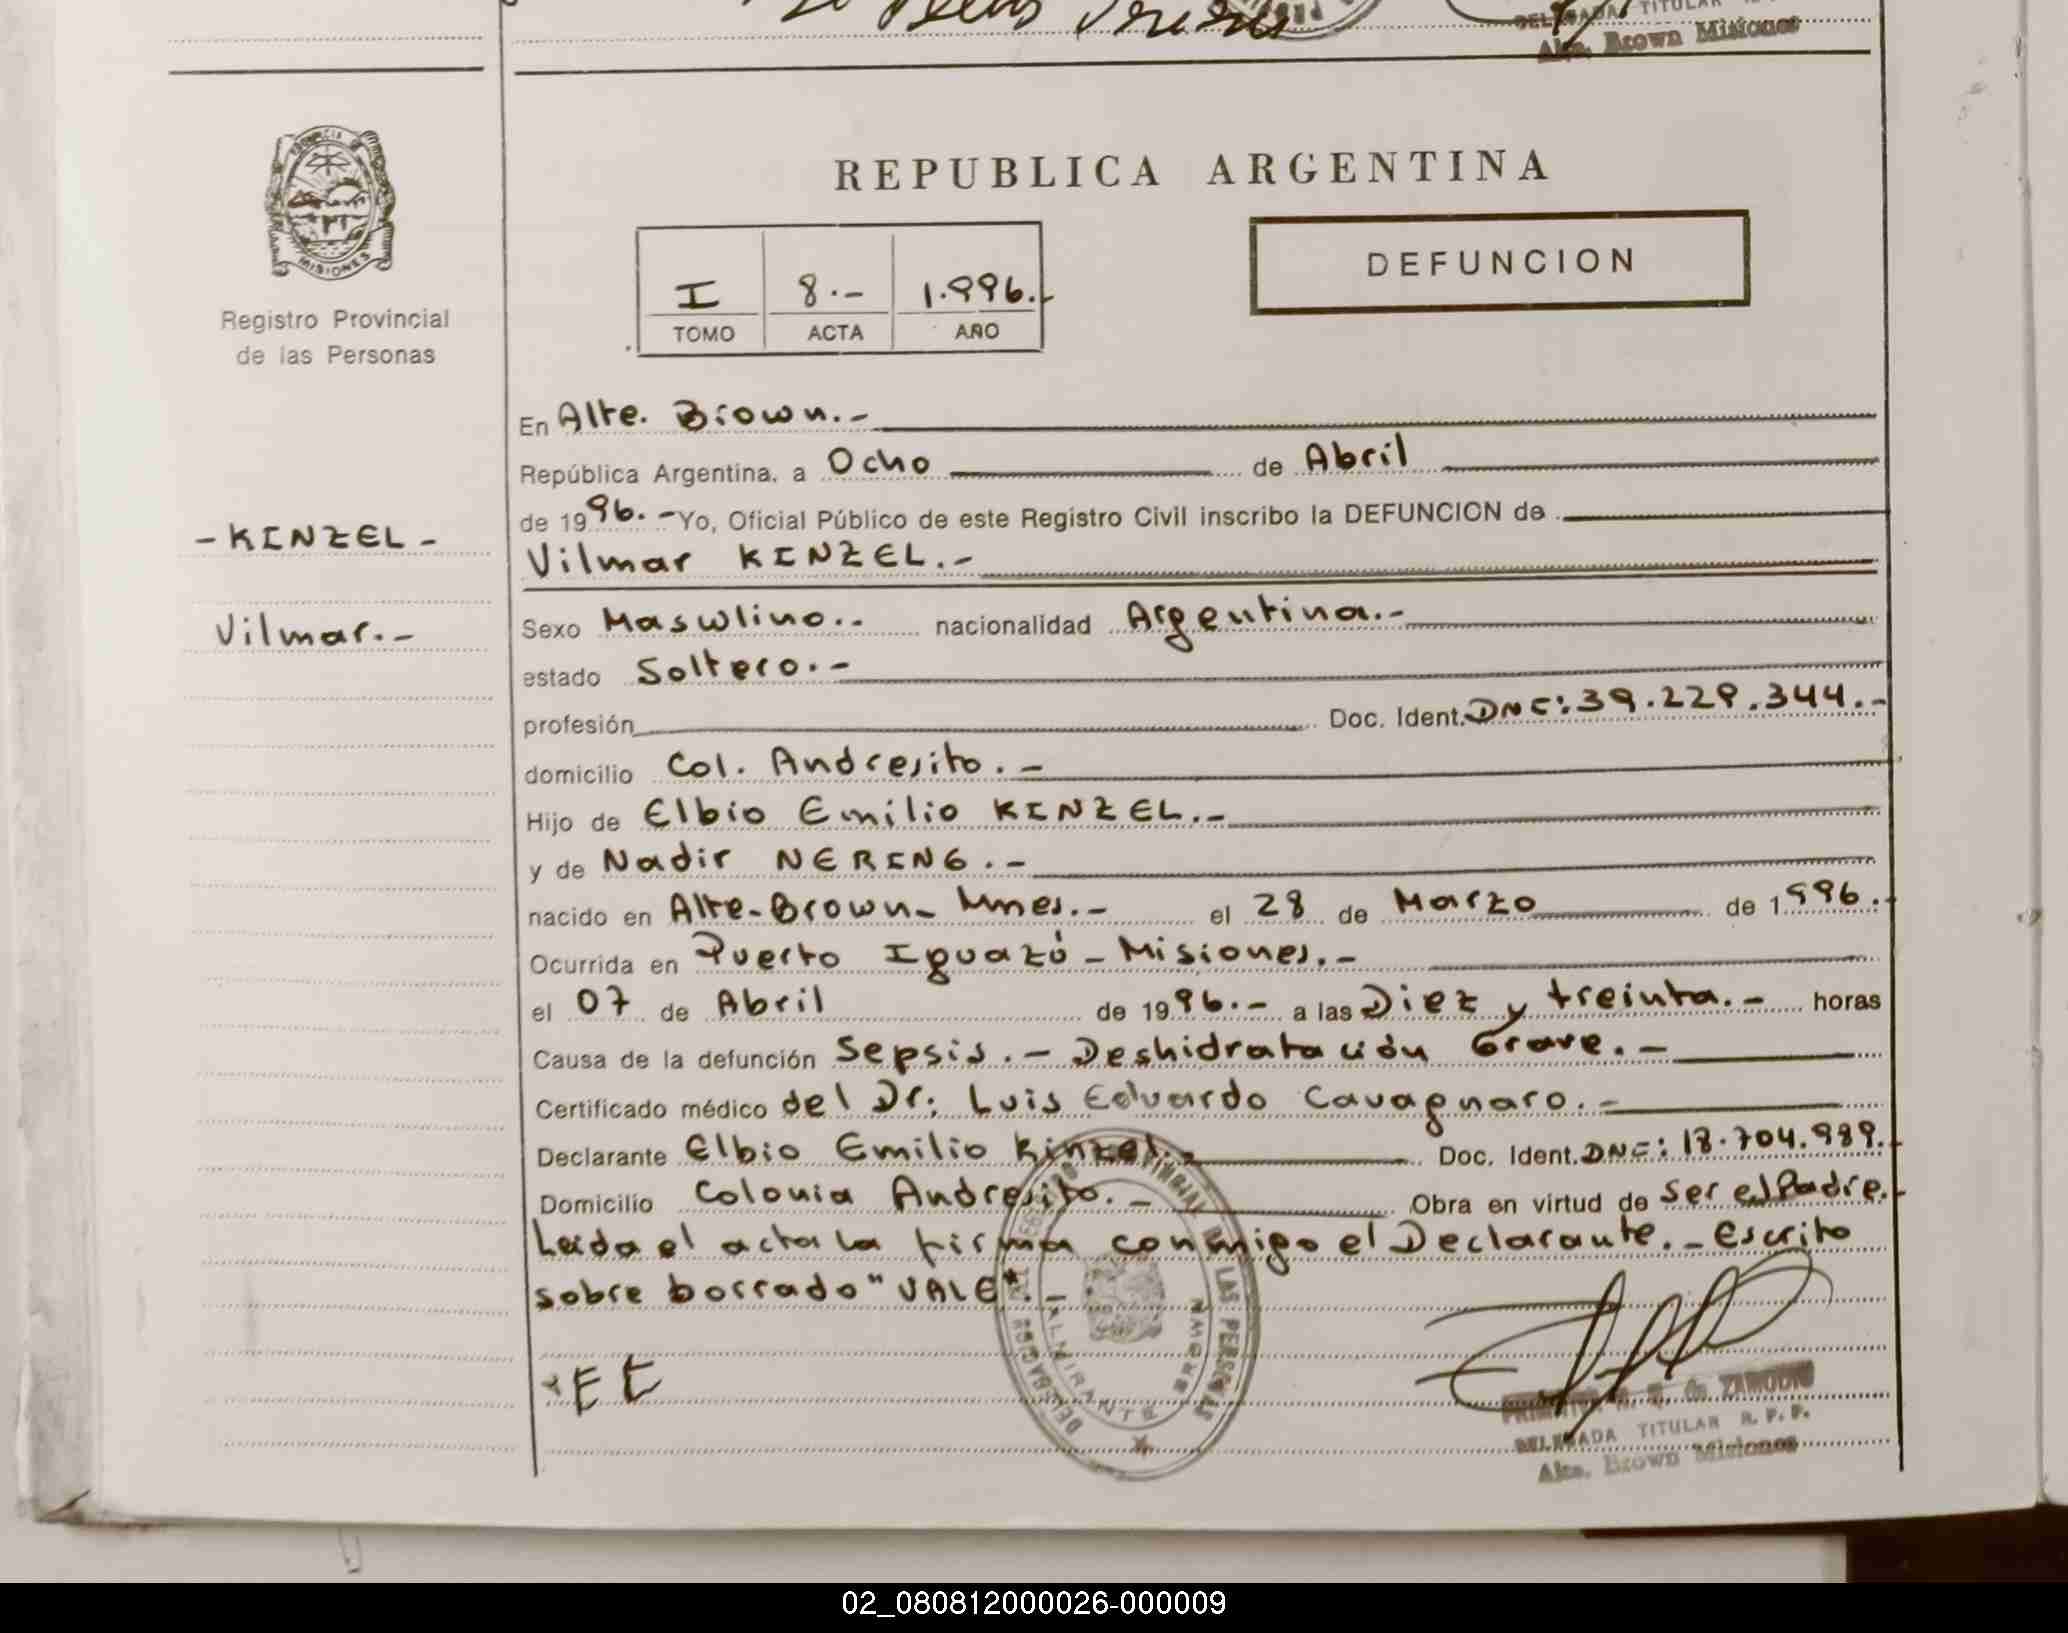 DELEGADA TITULAR
Alte. Brown Misiones
PROVINCIA
MISIONES
Registro Provincial
de las Personas
REPUBLICA ARGENTINA
I 8.- 1.996.-
TOMO ACTA AÑO
DEFUNCION
En Alte. Brown.-
República Argentina, a Ocho de Abril
de 1996.- Yo, Oficial Público de este Registro Civil inscribo la DEFUNCION de
- KINZEL -
Vilmar KINZEL.-
Vilmar.-
Sexo Masculino.- nacionalidad Argentina.-
estado Soltero.-
profesión Doc. Ident. DNI: 39.229.344.-
domicilio Col. Andresito.-
Hijo de Elbio Emilio KINZEL.-
y de Nadir NERING.-
nacido en Alte-Brown- Mnes.- el 28 de Marzo de 1996.-
Ocurrida en Puerto Iguazú - Misiones.-
el 07 de Abril de 1996.- a las Diez y treinta.- horas
Causa de la defunción Sepsis.- Deshidratación Grave.-
Certificado médico del Dr: Luis Eduardo Cavagnaro.-
Declarante Elbio Emilio Kinzel.- Doc. Ident. DNI: 18.704.989.-
Domicilio Colonia Andresito.- Obra en virtud de Ser el Padre.-
Leida el acta la firma conmigo el Declarante.- Escrito
sobre borrado "VALE".-
EE
DELEGACION PROVINCIAL DE LAS PERSONAS
ALMIRANTE BROWN
ZAMUDIO
DELEGADA TITULAR R. P. P.
Alte. Brown Misiones
02_080812000026-000009